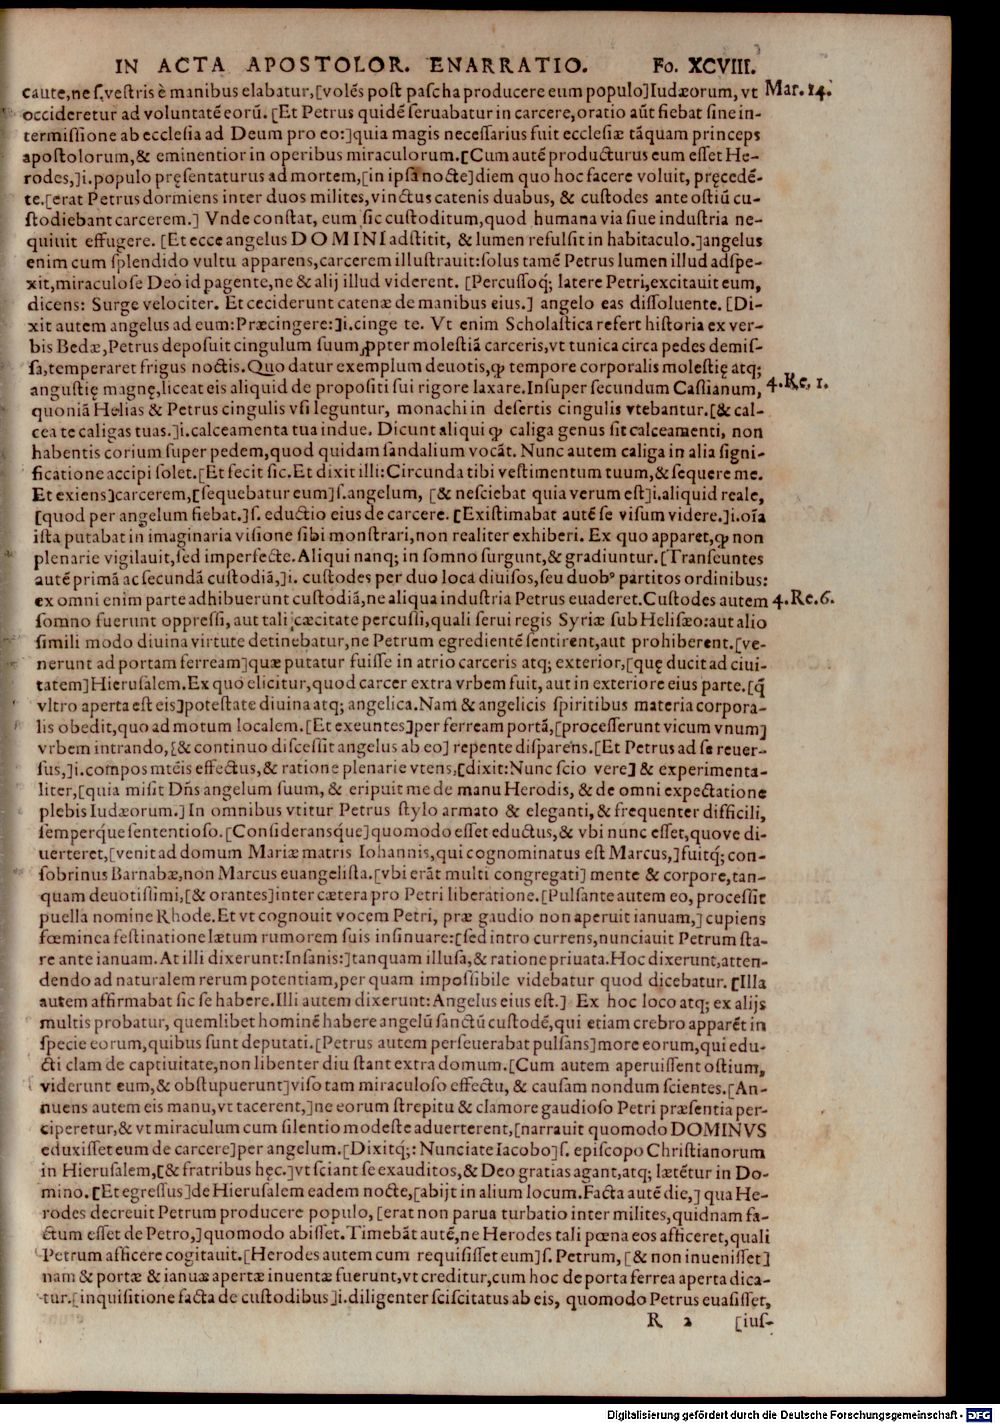 IN ACTA APOSTOLOR. ENARRATIO. Fo. XCVIII.
caute,ne ſ.veſtris è manibus elabatur,[volẽs poſt paſcha producere eum populo]Iudæorum, vt Mar. 14.
occideretur ad voluntatẽ eorũ. [Et Petrus quidẽ ſeruabatur in carcere,oratio aũt fiebat ſine in-
termiſſione ab eccleſia ad Deum pro eo:]quia magis neceſſarius fuit eccleſiæ tãquam princeps
apoſtolorum,& eminentior in operibus miraculorum.[Cum autẽ producturus eum eſſet He-
rodes,]i.populo pręſentaturus ad mortem,[in ipſa nocte]diem quo hoc facere voluit, pręcedẽ-
te.[erat Petrus dormiens inter duos milites,vinctus catenis duabus, & cuſtodes ante oſtiũ cu-
ſtodiebant carcerem.] Vnde conſtat, eum ſic cuſtoditum,quod humana via ſiue induſtria ne-
quiuit effugere. [Et ecce angelus DOMINI adſtitit, & lumen refulſit in habitaculo.]angelus
enim cum ſplendido vultu apparens,carcerem illuſtrauit:ſolus tamẽ Petrus lumen illud adſpe-
xit,miraculoſe Deo id pagente,ne & alij illud viderent. [Percuſſoq; latere Petri,excitauit eum,
dicens: Surge velociter. Et ceciderunt catenæ de manibus eius.] angelo eas diſſoluente. [Di-
xit autem angelus ad eum:Præcingere:]i.cinge te. Vt enim Scholaſtica refert hiſtoria ex ver-
bis Bedæ,Petrus depoſuit cingulum ſuum ꝓpter moleſtiã carceris,vt tunica circa pedes demiſ-
ſa,temperaret frigus noctis.Quo datur exemplum deuotis,ꝙ tempore corporalis moleſtię atq;
anguſtię magnę,liceat eis aliquid de propoſiti ſui rigore laxare.Inſuper ſecundum Caſſianum, 4.Re. 1.
quoniã Helias & Petrus cingulis vſi leguntur, monachi in deſertis cingulis vtebantur.[& cal-
cea te caligas tuas.]i.calceamenta tua indue. Dicunt aliqui ꝙ caliga genus ſit calceamenti, non
habentis corium ſuper pedem,quod quidam ſandalium vocãt. Nunc autem caliga in alia ſigni-
ficatione accipi ſolet.[Et fecit ſic.Et dixit illi:Circunda tibi veſtimentum tuum,& ſequere me.
Et exiens]carcerem,[ſequebatur eum]ſ.angelum, [& neſciebat quia verum eſt]i.aliquid reale,
[quod per angelum fiebat.]ſ. eductio eius de carcere. [Exiſtimabat autẽ ſe viſum videre.]i.oĩa
iſta putabat in imaginaria viſione ſibi monſtrari,non realiter exhiberi. Ex quo apparet,ꝙ non
plenarie vigilauit,ſed imperfecte.Aliqui nanq; in ſomno ſurgunt,& gradiuntur.[Tranſeuntes
autẽ primã ac ſecundã cuſtodiã,]i. cuſtodes per duo loca diuiſos,ſeu duobꝰ partitos ordinibus:
ex omni enim parte adhibuerunt cuſtodiã,ne aliqua induſtria Petrus euaderet.Cuſtodes autem 4.Re.6.
ſomno fuerunt oppreſſi, aut tali cæcitate percuſſi,quali ſerui regis Syriæ ſub Heliſæo:aut alio
ſimili modo diuina virtute detinebatur,ne Petrum egredientẽ ſentirent,aut prohiberent.[ve-
nerunt ad portam ferream]quæ putatur fuiſſe in atrio carceris atq; exterior,[quę ducit ad ciui-
tatem]Hieruſalem.Ex quo elicitur,quod carcer extra vrbem fuit, aut in exteriore eius parte.[q̃
vltro aperta eſt eis]poteſtate diuina atq; angelica.Nam & angelicis ſpiritibus materia corpora-
lis obedit,quo ad motum localem.[Et exeuntes]per ferream portã,[proceſſerunt vicum vnum]
vrbem intrando,[& continuo diſceſſit angelus ab eo] repente diſparens.[Et Petrus ad ſe reuer-
ſus,]i.compos mẽtis effectus,& ratione plenarie vtens,[dixit:Nunc ſcio vere] & experimenta-
liter,[quia miſit Dñs angelum ſuum, & eripuit me de manu Herodis, & de omni expectatione
plebis Iudæorum.] In omnibus vtitur Petrus ſtylo armato & eleganti,& frequenter difficili,
ſemperq́ue ſententioſo.[Conſideransq́ue]quomodo eſſet eductus,& vbi nunc eſſet,quove di-
uerteret,[venit ad domum Mariæ matris Iohannis,qui cognominatus eſt Marcus,]fuitq́; con-
ſobrinus Barnabæ,non Marcus euangeliſta.[vbi erãt multi congregati] mente & corpore,tan-
quam deuotiſſimi,[& orantes]inter cætera pro Petri liberatione.[Pulſante autem eo, proceſſit
puella nomine Rhode.Et vt cognouit vocem Petri, præ gaudio non aperuit ianuam,] cupiens
fœminea feſtinatione lætum rumorem ſuis inſinuare:[ſed intro currens,nunciauit Petrum ſta-
re ante ianuam.At illi dixerunt:Inſanis:]tanquam illuſa,& ratione priuata.Hoc dixerunt,atten-
dendo ad naturalem rerum potentiam,per quam impoſſibile videbatur quod dicebatur. [Illa
autem affirmabat ſic ſe habere.Illi autem dixerunt:Angelus eius eſt.] Ex hoc loco atq; ex alijs
multis probatur, quemlibet hominẽ habere angelũ ſanctũ cuſtodẽ,qui etiam crebro apparẽt in
ſpecie eorum,quibus ſunt deputati.[Petrus autem perſeuerabat pulſans]more eorum,qui edu-
cti clam de captiuitate,non libenter diu ſtant extra domum. [Cum autem aperuiſſent oſtium,
viderunt eum,& obſtupuerunt]viſo tam miraculoſo effectu, & cauſam nondum ſcientes.[An-
nuens autem eis manu,vt tacerent,]ne eorum ſtrepitu & clamore gaudioſo Petri præſentia per-
ciperetur,& vt miraculum cum ſilentio modeſte aduerterent,[narrauit quomodo DOMINVS
eduxiſſet eum de carcere]per angelum.[Dixitq́;: Nunciate Iacobo]ſ. epiſcopo Chriſtianorum
in Hieruſalem,[& fratribus hęc.]vt ſciant ſe exauditos,& Deo gratias agant,atq; lætẽtur in Do-
mino. [Et egreſſus]de Hieruſalem eadem nocte,[abijt in alium locum.Facta autẽ die,] qua He-
rodes decreuit Petrum producere populo, [erat non parua turbatio inter milites,quidnam fa-
ctum eſſet de Petro,]quomodo abiſſet.Timebãt autẽ,ne Herodes tali pœna eos afficeret,quali
Petrum afficere cogitauit.[Herodes autem cum requiſiſſet eum]ſ. Petrum, [& non inueniſſet]
nam & portæ & ianuæ apertæ inuentæ fuerunt,vt creditur,cum hoc de porta ferrea aperta dica-
tur.[inquiſitione facta de cuſtodibus]i.diligenter ſciſcitatus ab eis, quomodo Petrus euaſiſſet,
R 2 [iuſ-
Digitalisierung gefördert durch die Deutsche Forschungsgemeinschaft - DFG